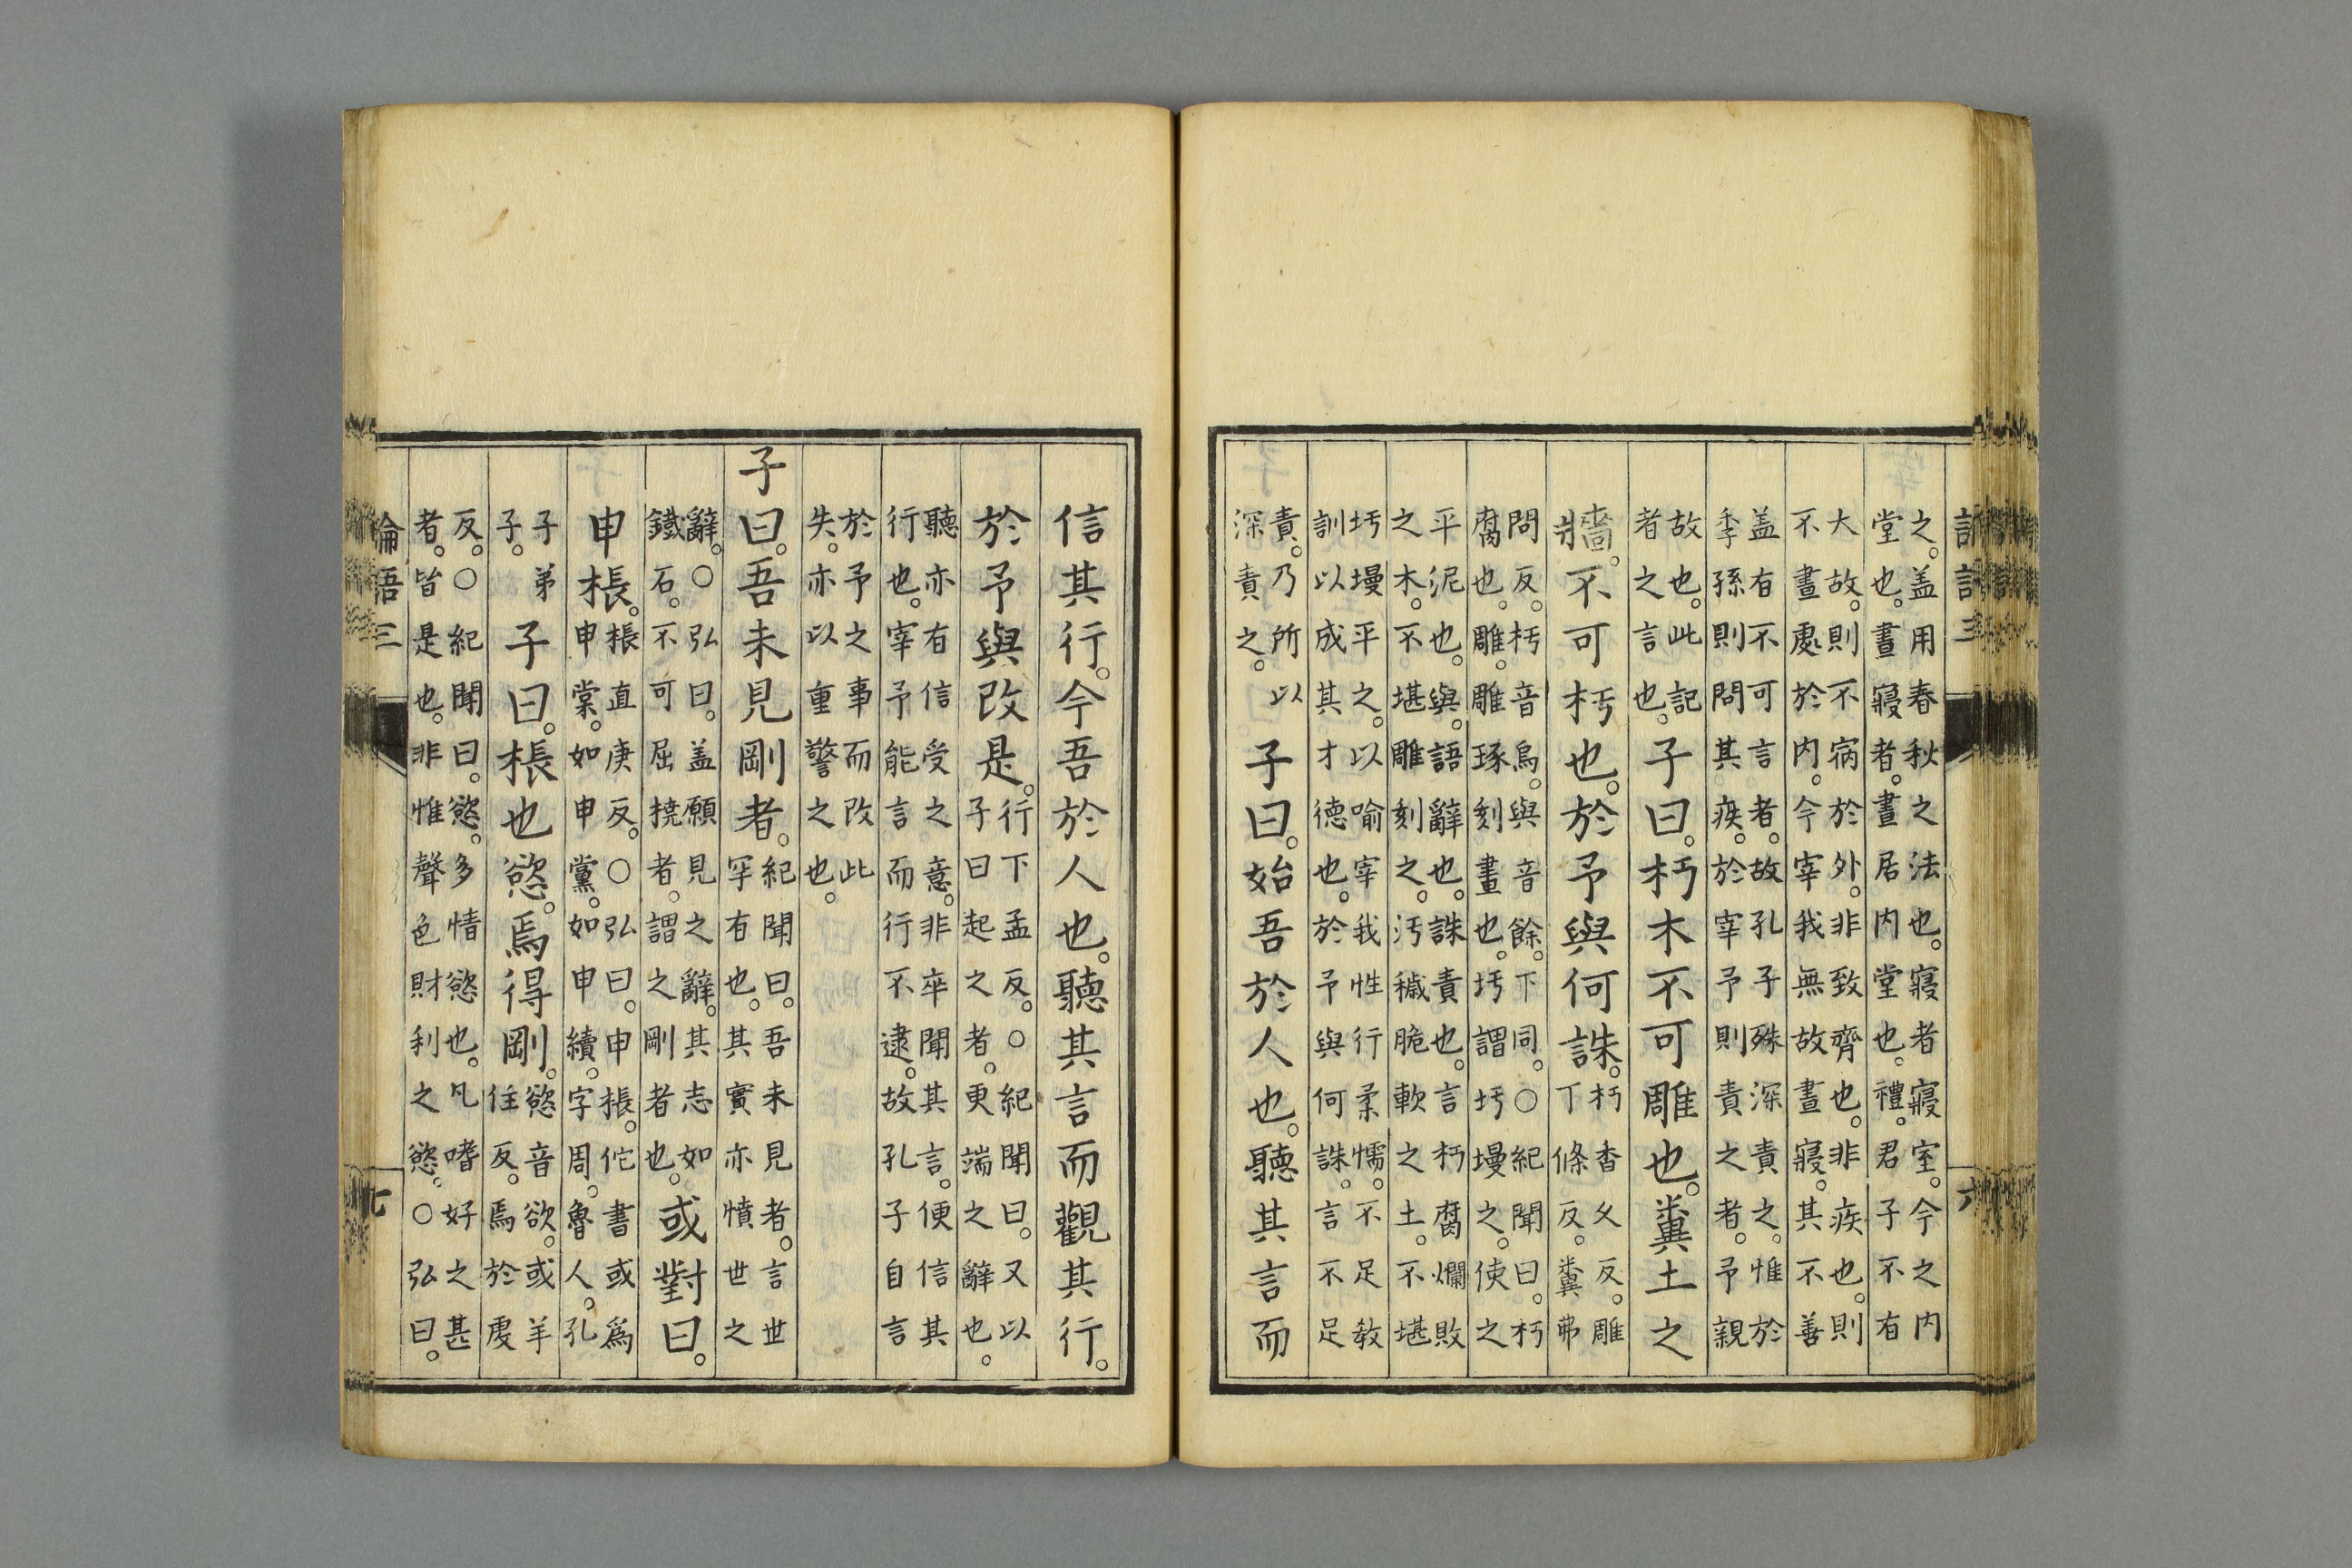 訓詁三 六
之。盖用春秋之法也。寢者寢室。今之内
堂也。晝寢者。晝居内堂也。禮。君子不有
大故。則不病於外。非致齊也。非疾也。則
不晝處於内。今宰我無故晝寢。其不善
盖有不可言者。故孔子殊深責之。惟於
季孫則問其疾。於宰予則責之者。予親
故也。此記
者之言也。
子曰。朽木不可雕也。糞土之
牆。不可杇也。於予與何誅。
朽香父反。雕
丁條反。糞弗
問反。杇音烏。與音餘。下同。○紀聞曰。朽
腐也。雕。雕琢刻畫也。圬謂圬墁之。使之
平泥也。與。語辭也。誅責也。言朽腐爛敗
之木。不堪雕刻之。汚穢脆軟之土。不堪
圬墁平之。以喻宰我性行柔懦。不足教
訓以成其才德也。於予與何誅。言不足
責。乃所以
深責之。
子曰。始吾於人也。聽其言而
信其行。今吾於人也。聽其言而觀其行。
於予與改是。
行下孟反。○紀聞曰。又以
子曰起之者。更端之辭也。
聽亦有信受之意。非卒聞其言。便信其
行也。宰予能言而行不逮。故孔子自言
於予之事而改此
失。亦以重警之也。
子曰。吾未見剛者。
紀聞曰。吾未見者。言世
罕有也。其實亦憤世之
辭。○弘曰。盖願見之辭。其志如
鐵石。不可屈撓者。謂之剛者也。
或對曰。
申棖。
棖直庚反。○弘曰。申棖。佗書或爲
申棠。如申黨。如申續。字周。魯人。孔
子弟
子。
子曰。棖也慾。焉得剛。
慾音欲。或羊
住反。焉於虔
反。○紀聞曰。慾。多情慾也。凡嗜好之甚
者。皆是也。非惟聲色財利之慾。○弘曰。
論語三 七